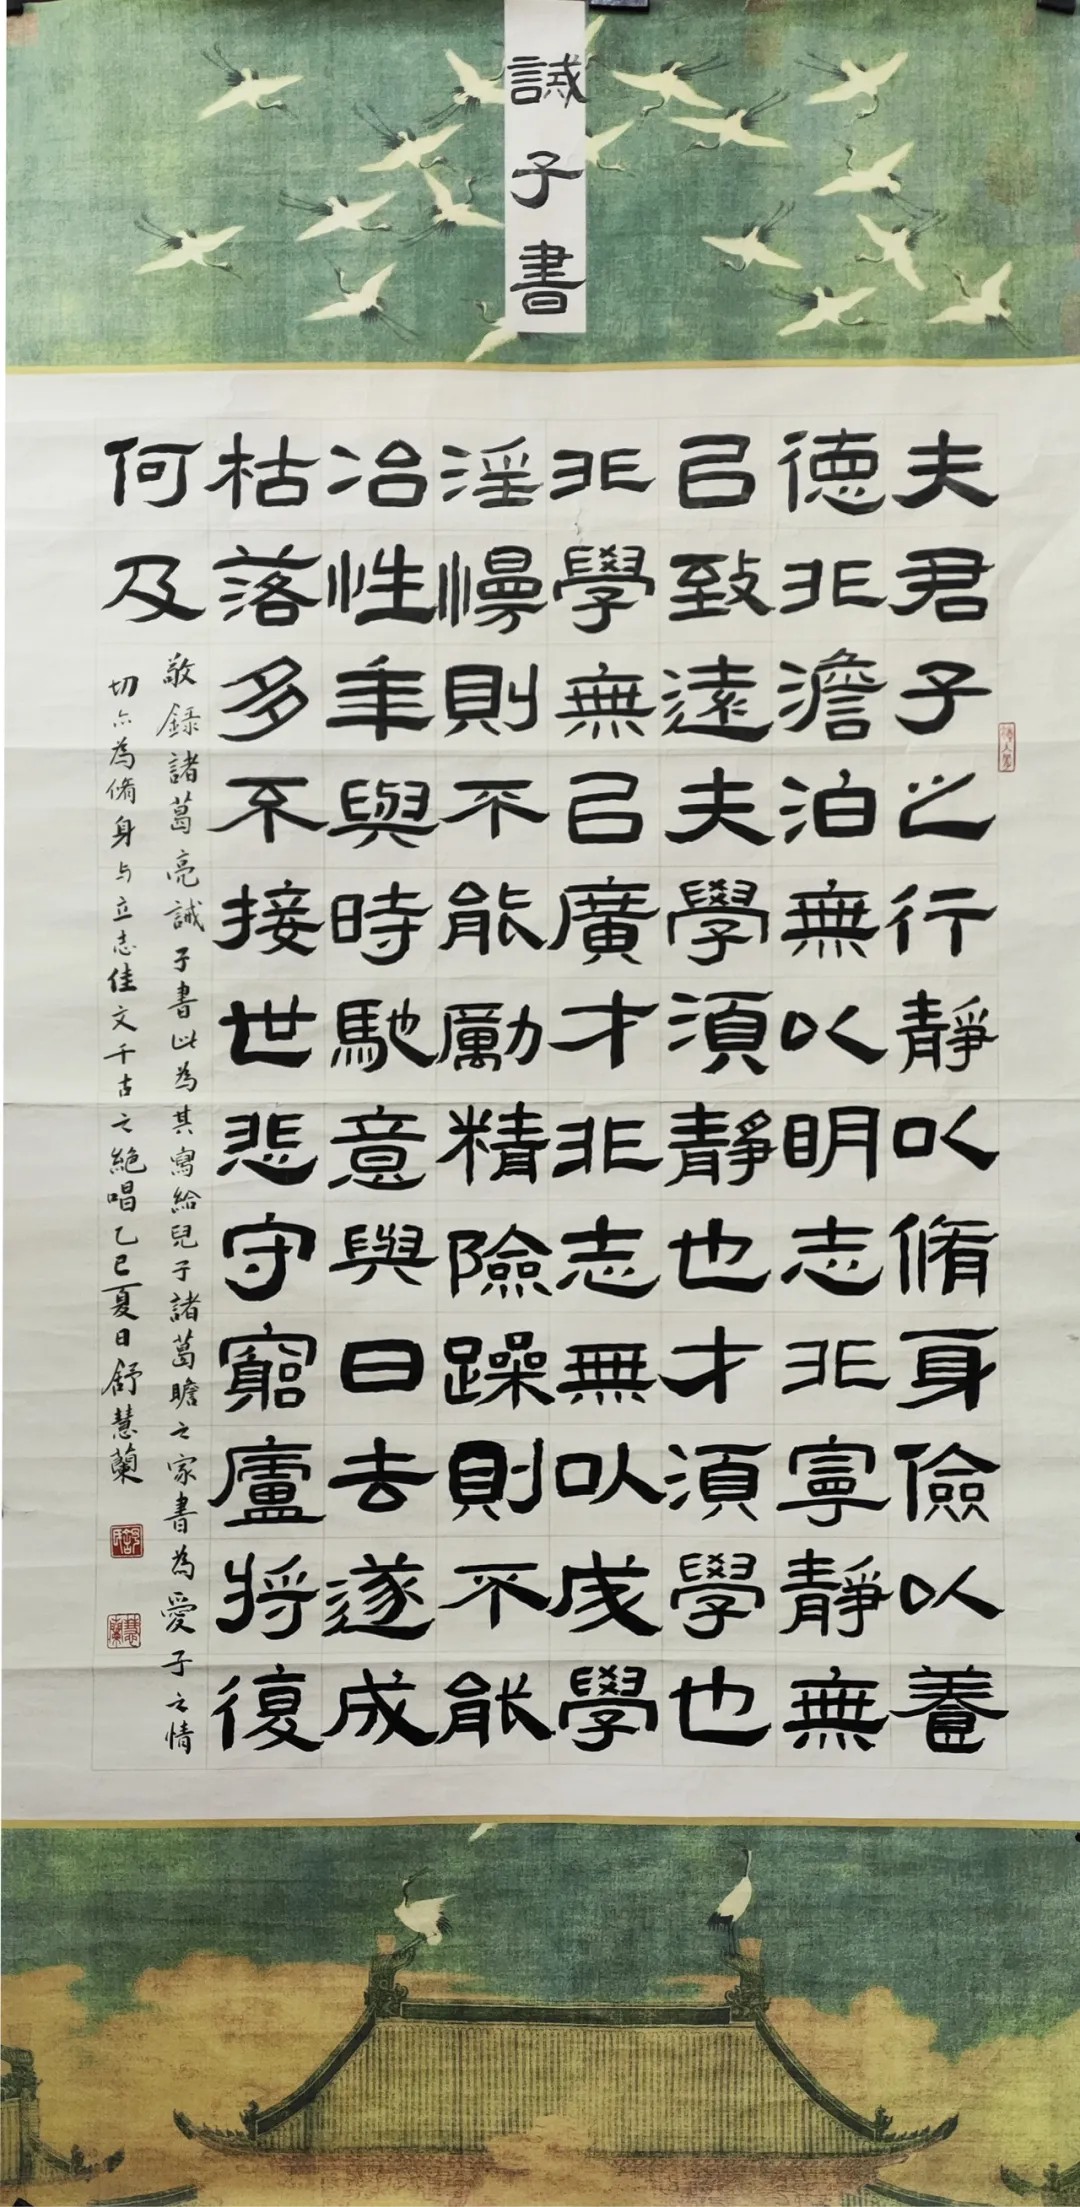 誡子書
夫君子之行靜以脩身儉以養
德非澹泊無以明志非寧靜無
㠯致遠夫學須靜也才須學也
非學無㠯廣才非志無以成學
淫慢則不能勵精險躁則不能
冶性年與時馳意與日去遂成
枯落多不接世悲守窮廬將復
何及
敬錄諸葛亮誡子書此為其寫給兒子諸葛瞻之家書為愛子之情
切亦為脩身与立志佳文千古之絕唱乙巳夏日舒慧蘭
舒氏
慧蘭